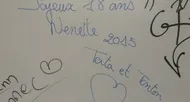 Joyeux 18 ans
Nenette 2015
Tata et Tonton